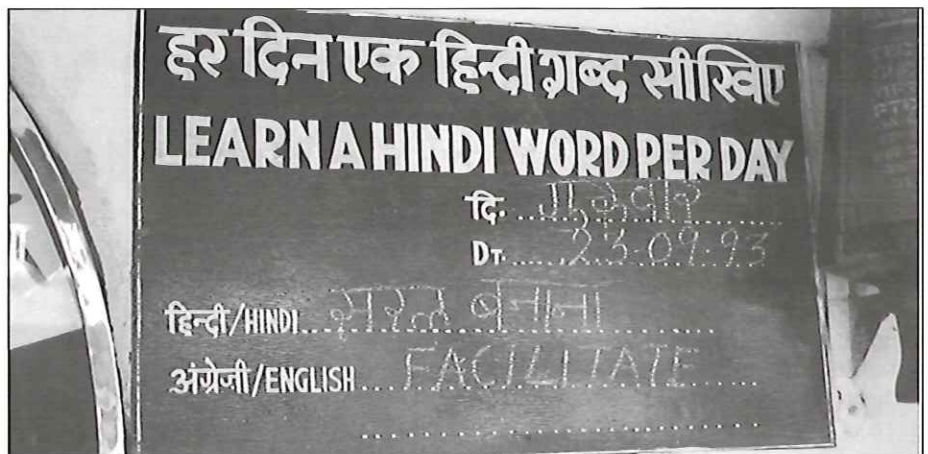 हर दिन एक हिन्दी शब्द सीखिए
LEARN A HINDI WORD PER DAY
दि. गुरुवार
DT. 23.09.93
हिन्दी/HINDI सरल बनाना
अंग्रेजी/ENGLISH FACILITATE